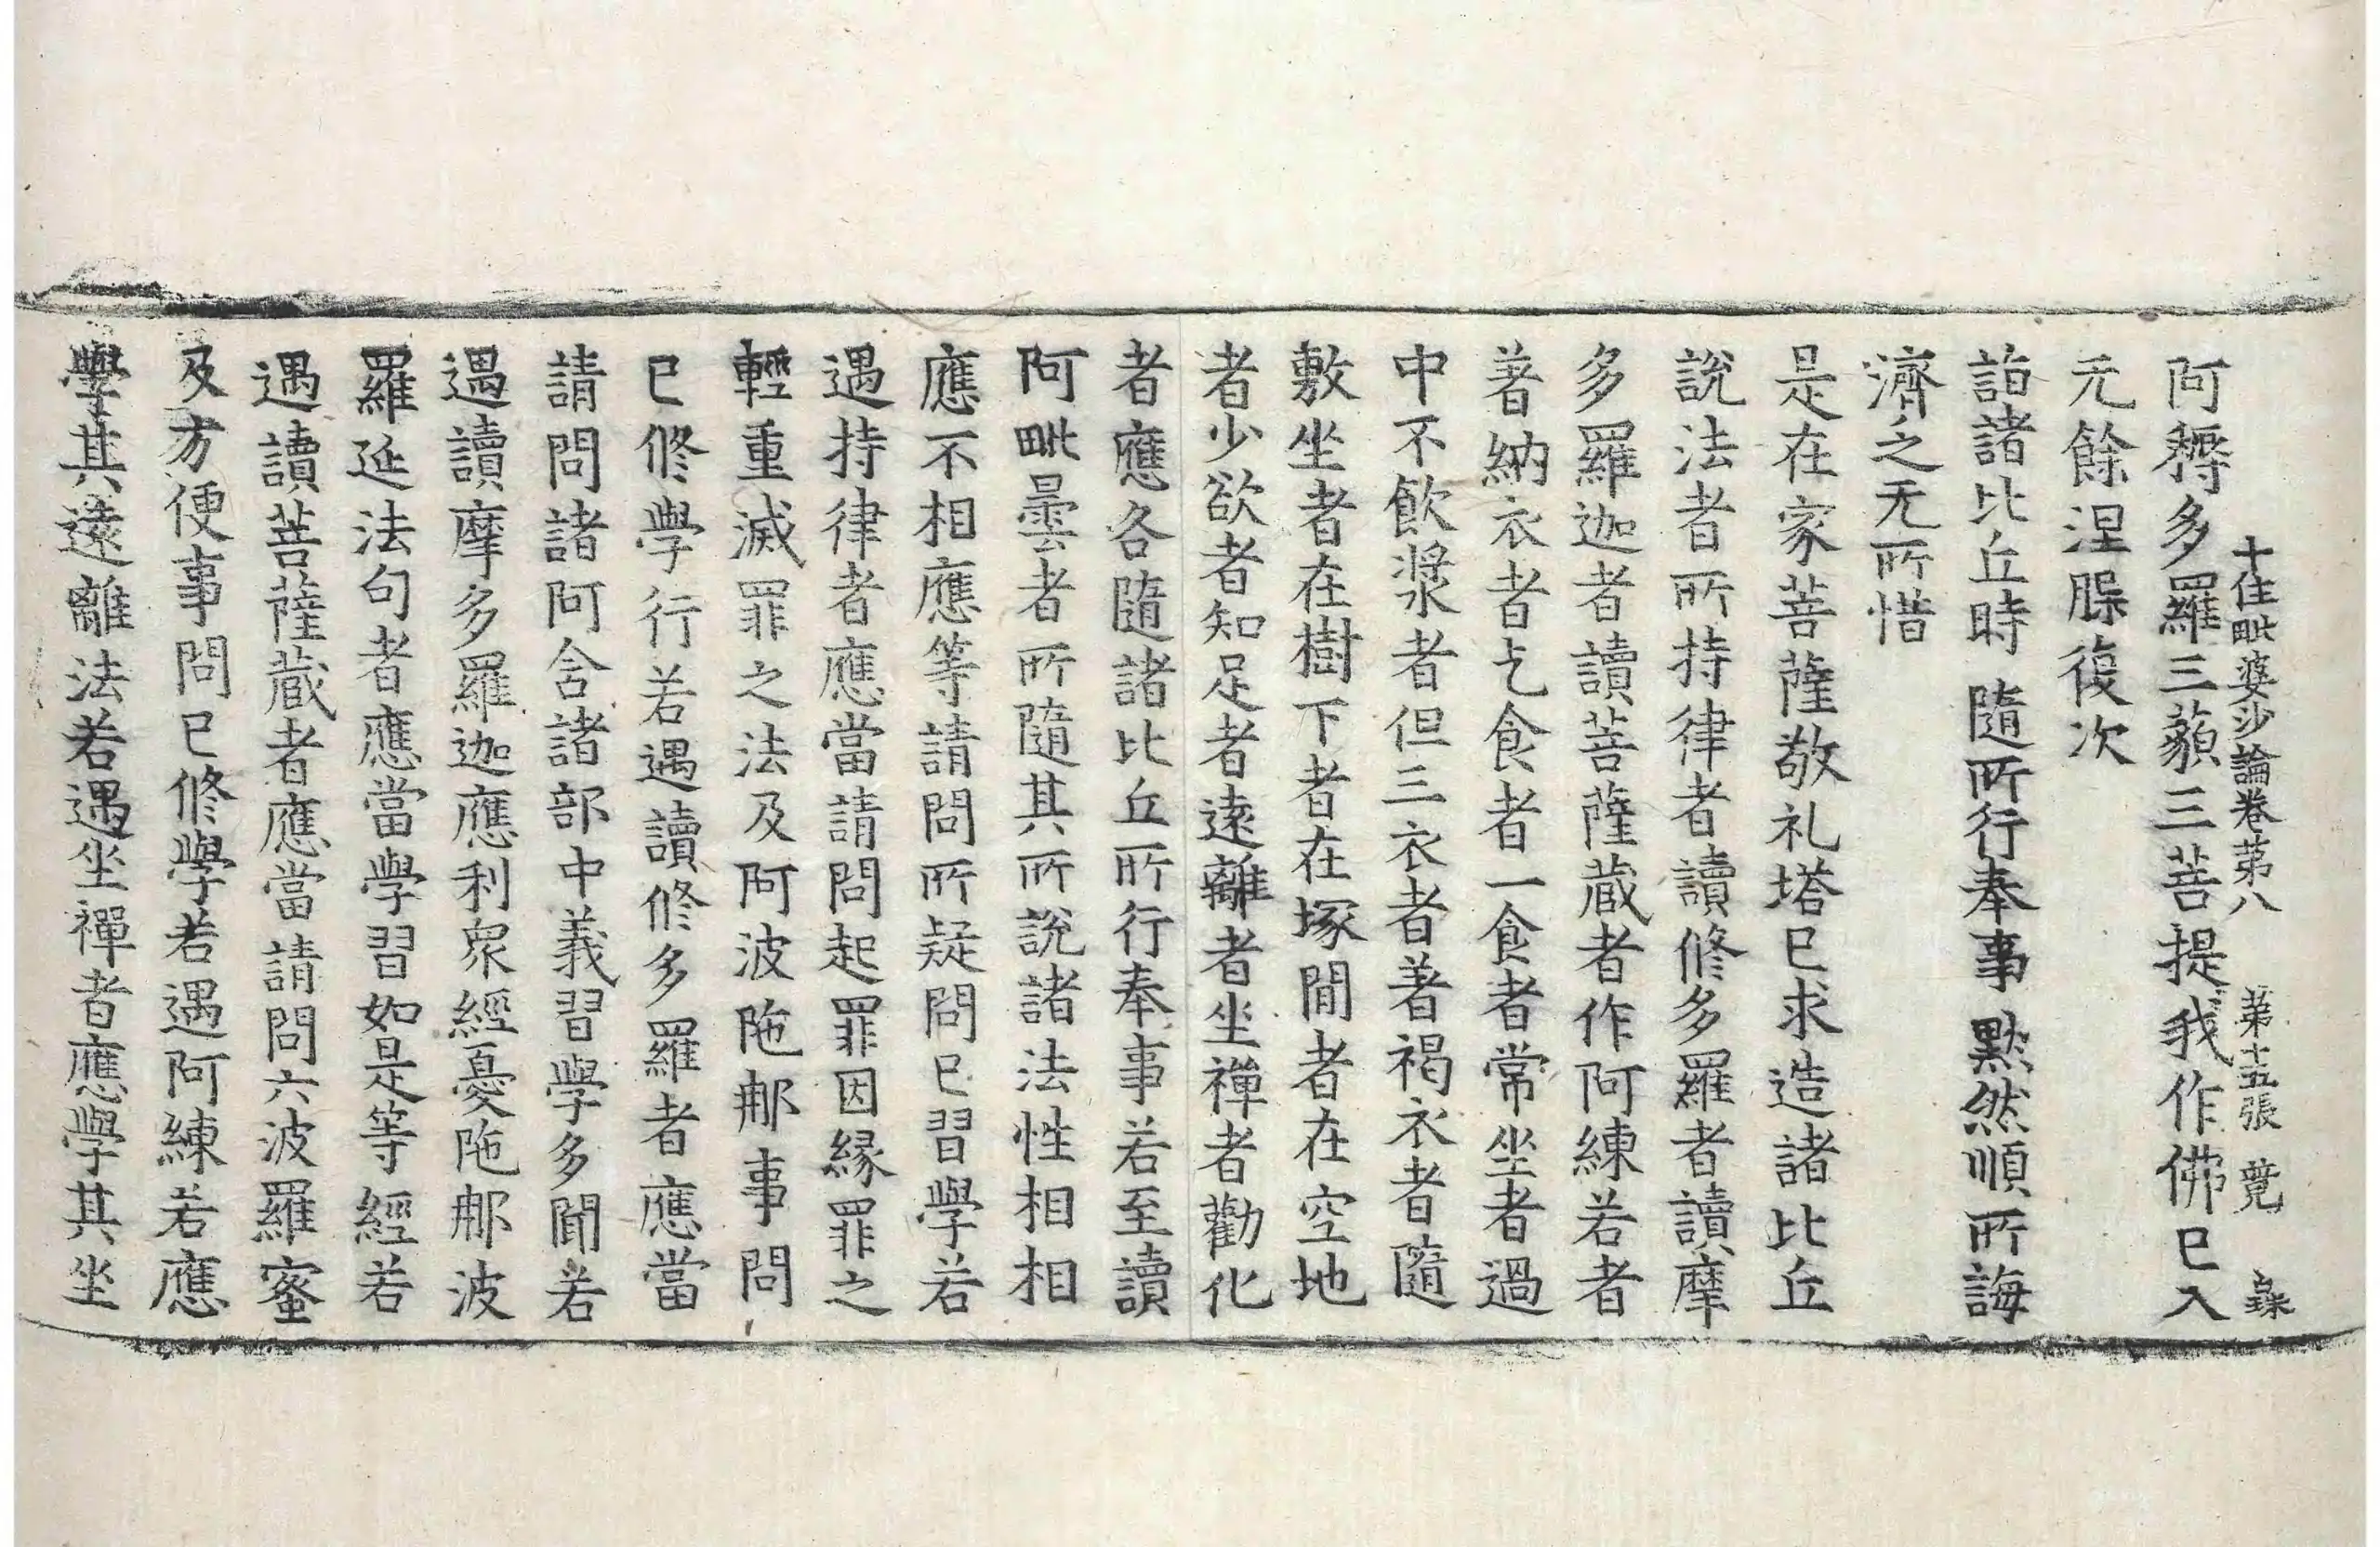 十住毗婆沙論卷第八 第十五張 竟
阿耨多羅三藐三菩提我作佛已入
无餘涅脲復次
詣諸比丘時 隨所行奉事 黙然順所誨
濟之无所惜
是在家菩薩敬礼塔已求造諸比丘
說法者所持律者讀修多羅者讀摩
多羅迦者讀菩薩蔵者作阿練若者
著納衣者乞食者一食者常坐者過
中不飲漿者但三衣者著褐衣者隨
敷坐者在樹下者在塚閒者在空地
者少欲者知足者遠離者坐禪者勸化
者應各隨諸比丘所行奉事若至讀
阿毗曇者所隨其所說諸法性相相
應不相應等請問所疑問已習學若
遇持律者應當請問起罪因縁罪之
輕重滅罪之法及阿波陁那事問
已修學行若遇讀修多羅者應當
請問諸阿含諸部中義習學多聞若
遇讀摩多羅迦應利衆經憂陁那波
羅延法句者應當學習如是等經若
遇讀菩薩蔵者應當請問六波羅蜜
及方便事問已修學若遇阿練若應
學其遠離法若遇坐禪者應學其坐